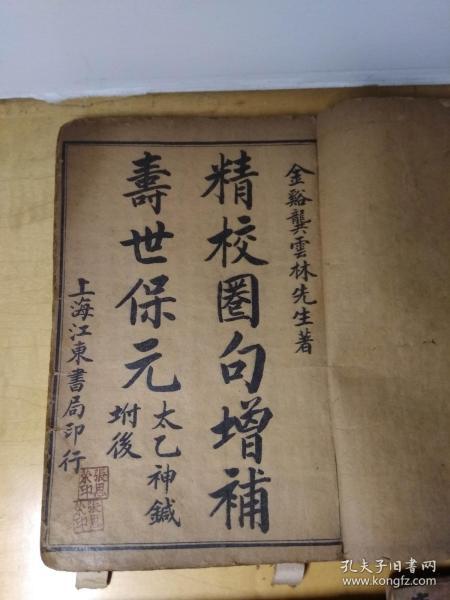 金谿龔雲林先生著
精校圈句增補
壽世保元
太乙神鍼
坿後
上海江東書局印行
張恩
孔夫子旧书网